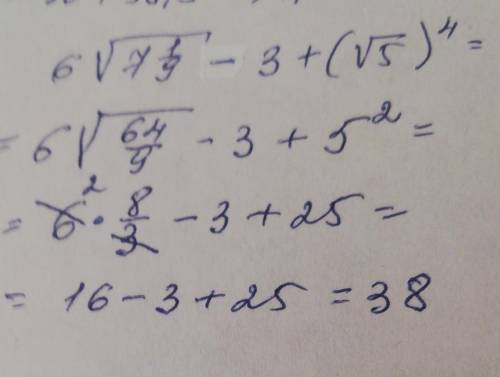 6√(7 1/9) - 3 + (√5)⁴ =
= 6√(64/9) - 3 + 5² =
= 6² · 8/3 - 3 + 25 =
= 16 - 3 + 25 = 38